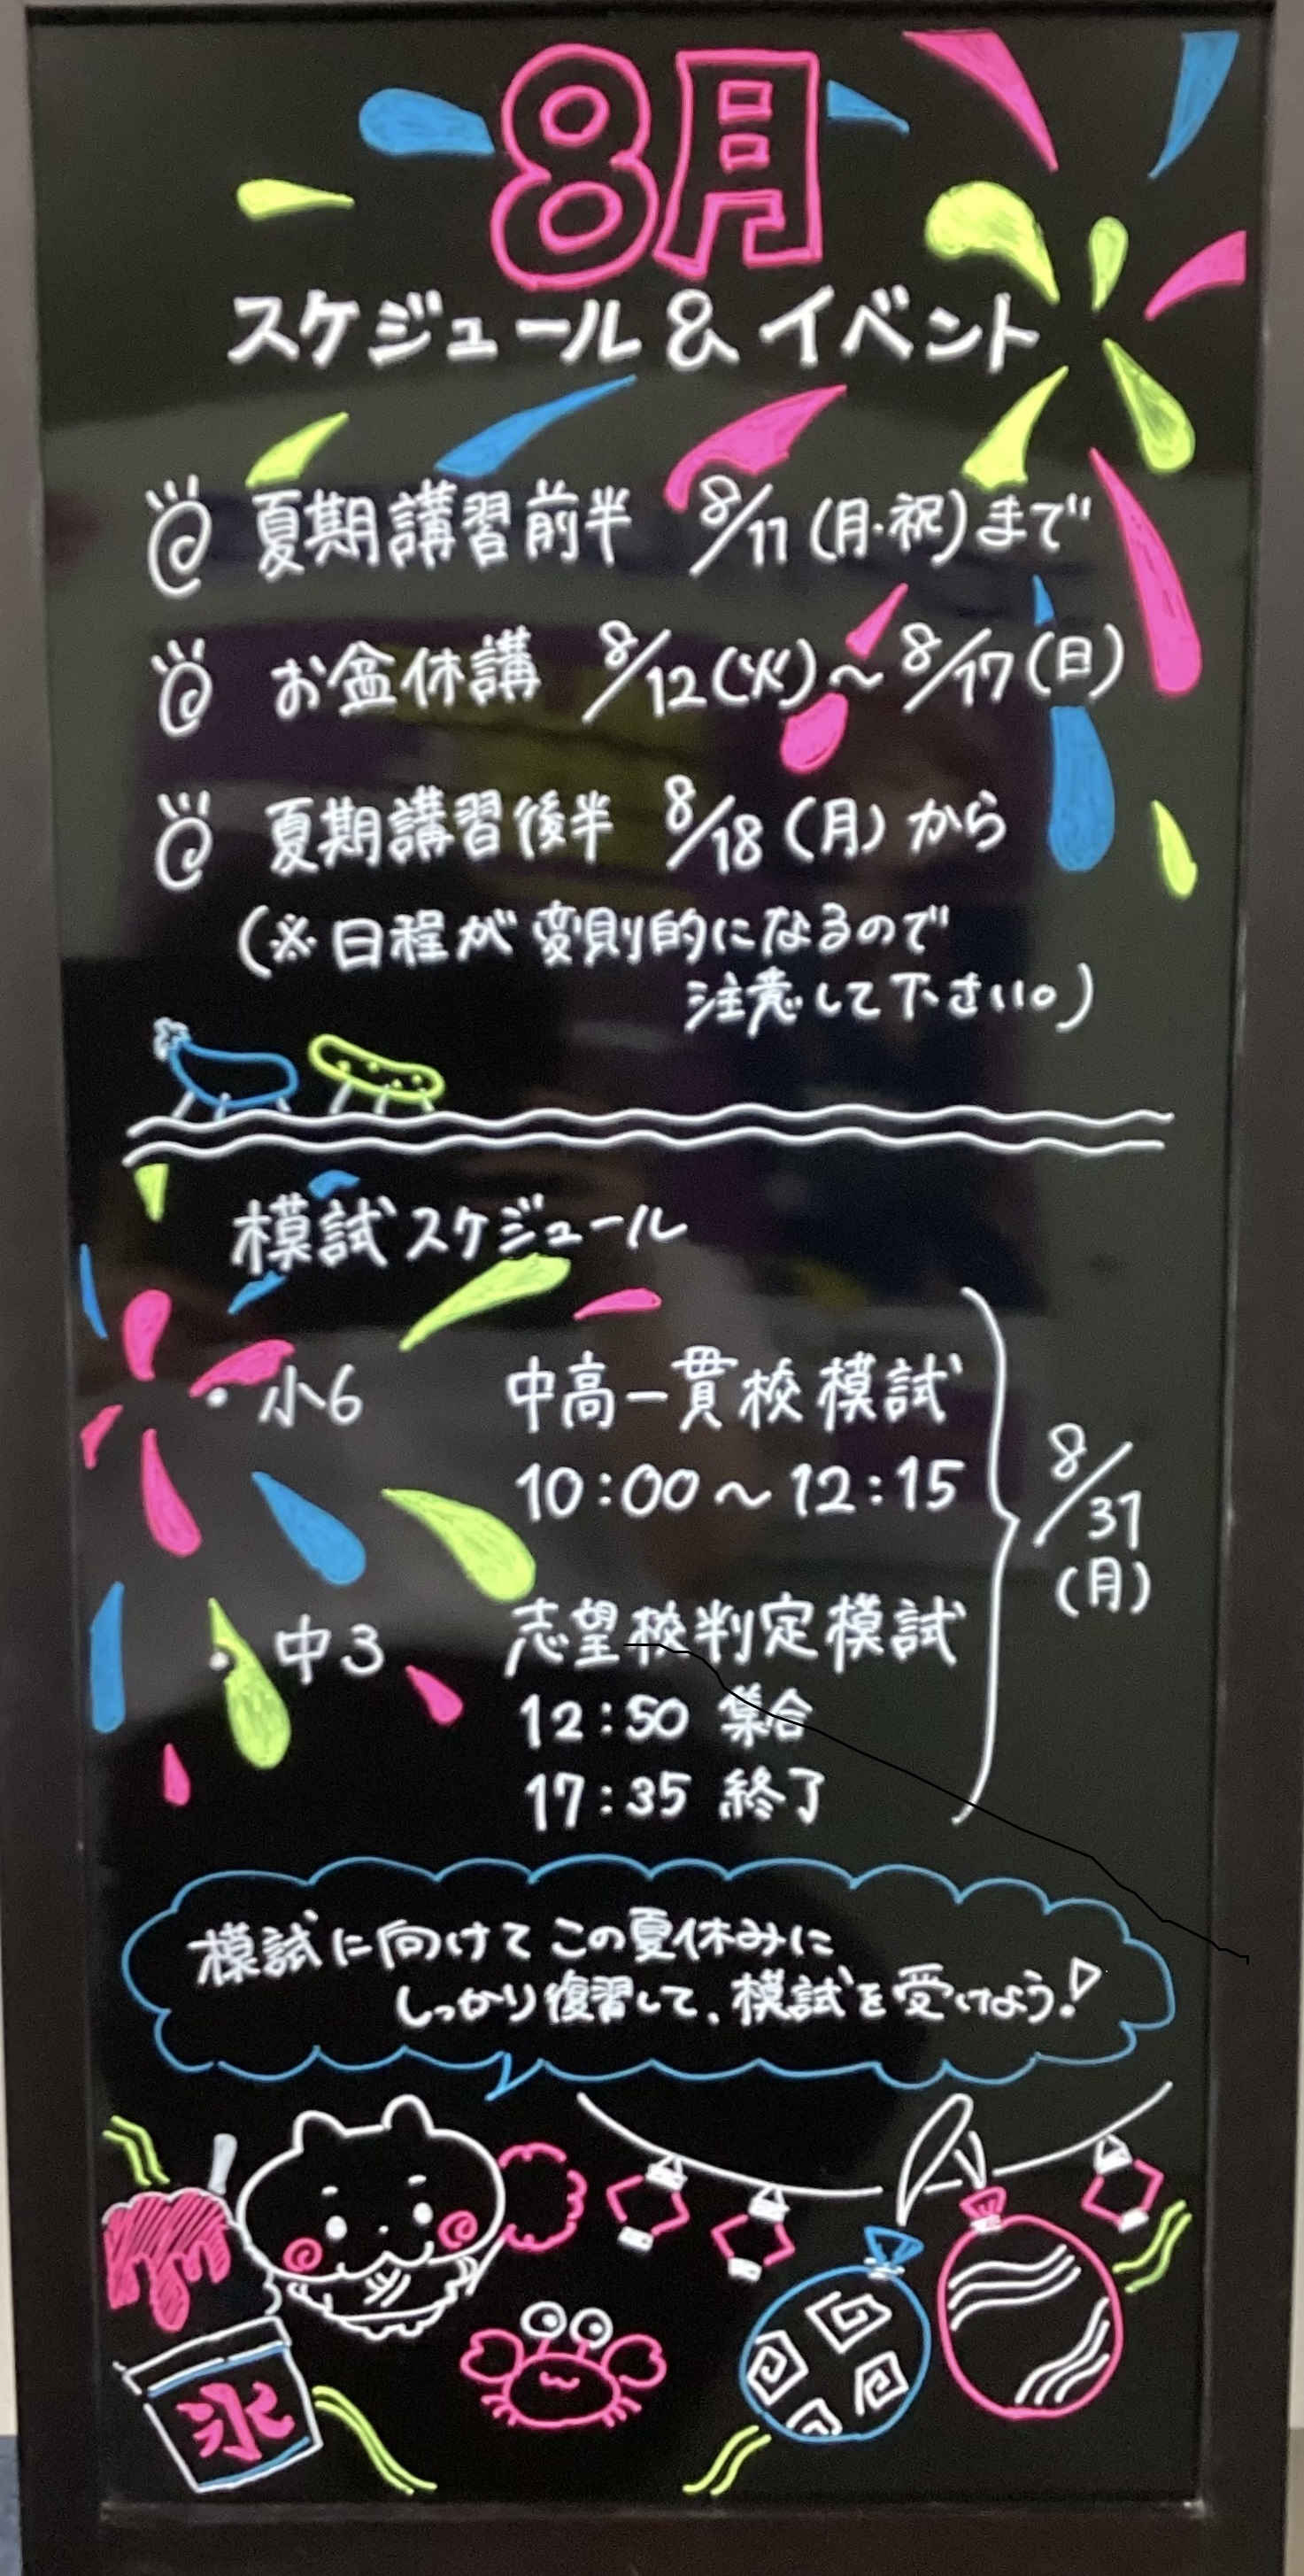 8月
スケジュール & イベント
夏期講習前半 8/11(月・祝)まで
お盆休講 8/12(火)～8/17(日)
夏期講習後半 8/18(月)から
(※日程が変則的になるので
注意して下さい。)
模試スケジュール
・小6 中高一貫校模試
10:00～12:15
8/31
(月)
・中3 志望校判定模試
12:50 集合
17:35 終了
模試に向けてこの夏休みに
しっかり復習して、模試を受けよう!
氷